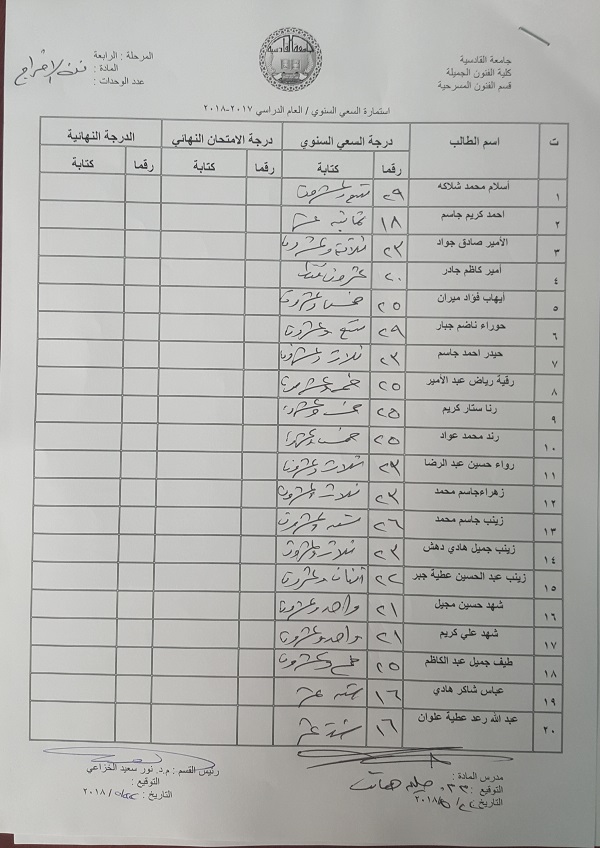 جامعة القادسية
كلية الفنون الجميلة
قسم الفنون المسرحية
جامعة القادسية
المرحلة : الرابعة
المادة : فن الاخراج
عدد الوحدات :
استمارة السعي السنوي / العام الدراسي ٢٠١٧-٢٠١٨
ت اسم الطالب درجة السعي السنوي درجة الامتحان النهائي الدرجة النهائية
رقما كتابة رقما كتابة رقما كتابة
١ أسلام محمد شلاكه ٢٩ تسع وعشرون
٢ احمد كريم جاسم ١٨ ثمانية عشر
٣ الأمير صادق جواد ٢٣ ثلاثة وعشرون
٤ أمير كاظم جادر ٢٠ عشرون فقط
٥ أيهاب فؤاد ميران ٢٥ خمس وعشرون
٦ حوراء ناضم جبار ٢٩ تسع وعشرون
٧ حيدر احمد جاسم ٢٣ ثلاث وعشرون
٨ رقية رياض عبد الأمير ٢٥ خمس وعشرون
٩ رنا ستار كريم ٢٥ خمس وعشرون
١٠ رند محمد عواد ٢٥ خمس وعشرون
١١ رواء حسين عبد الرضا ٢٣ ثلاث وعشرون
١٢ زهراءجاسم محمد ٢٣ ثلاث وعشرون
١٣ زينب جاسم محمد ٢٦ سته وعشرون
١٤ زينب جميل هادي دهش ٢٣ ثلاث وعشرون
١٥ زينب عبد الحسين عطية جبر ٢٢ اثنان وعشرون
١٦ شهد حسين مجيل ٢١ واحد وعشرون
١٧ شهد علي كريم ٢١ واحد وعشرون
١٨ طيف جميل عبد الكاظم ٢٥ وعشرون
١٩ عباس شاكر هادي ١٦ سته عشر
٢٠ عبد الله رعد عطية علوان ١٦ ستة عشر
مدرس المادة :
التوقيع :
التاريخ : / ٢٠١٨
رئيس القسم : م.د. نور سعيد الخزاعي
التوقيع :
التاريخ : / ٢٠١٨